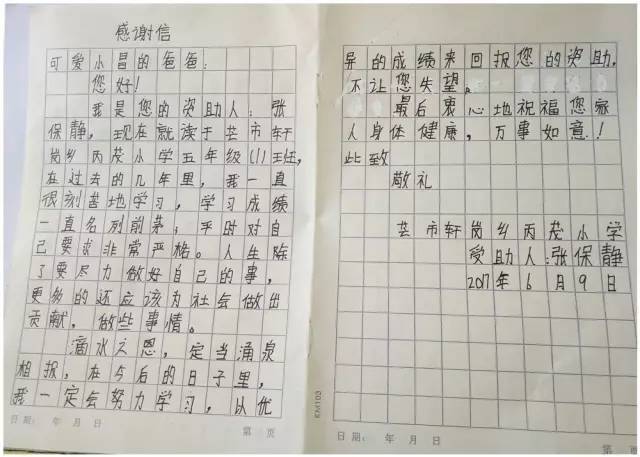 感谢信
可爱小昌的爸爸：
您好！
我是您的资助人：张
保静，现在就读于芒市轩
岗乡丙茂小学五年级(1)班，
在过去的几年里，我一直
很刻苦地学习，学习成绩
一直名列前茅，平时对自
己要求非常严格。人生除
了要尽力做好自己的事，
更多的还应该为社会做出
贡献，做些事情。
滴水之恩，定当涌泉
相报，在今后的日子里，
我一定会努力学习，以优
日期： 年 月 日
第 页
KM103
异的成绩来回报您的资助，
不让您失望。
最后衷心地祝福您家
人身体健康，万事如意！
此致
敬礼
芒市轩岗乡丙茂小学
受助人：张保静
2017年6月9日
日期： 年 月 日
第 页